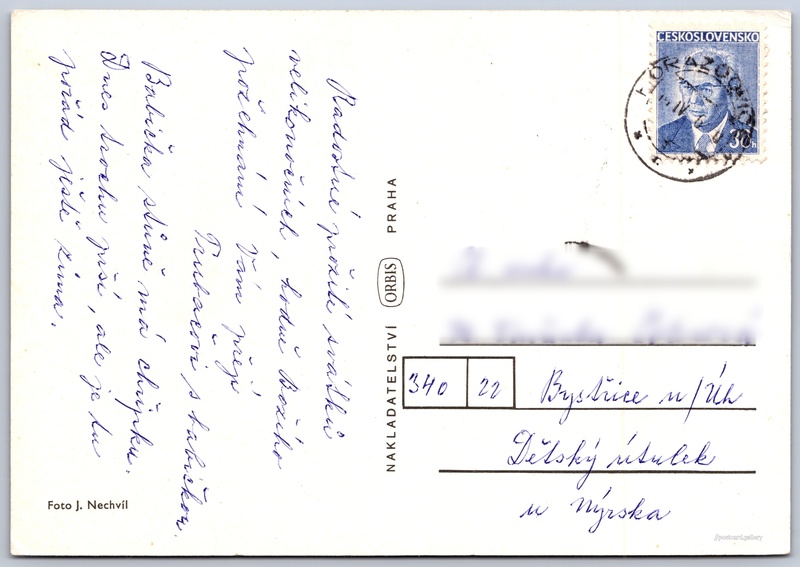 Radostné prožití svátků
velikonočních, hodně Božího
požehnání Vám přejí
Trubačovi s babičkou.
Babička stůně má chřipku.
Dnes trochu prší, ale je tu
pořád ještě zima.
Foto J. Nechvíl
NAKLADATELSTVÍ ORBIS PRAHA
ČESKOSLOVENSKO
30h
HORAŽĎOVICE
340 22
Bystřice n/Úh
Dětský útulek
u Nýrska
//postcard.gallery